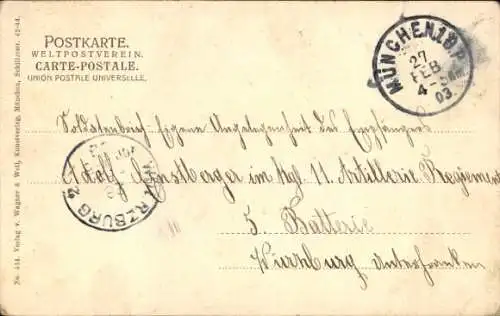 POSTKARTE.
WELTPOSTVEREIN.
CARTE-POSTALE.
UNION POSTALE UNIVERSELLE.
MÜNCHEN.18.P.
27
FEB
4-5
03
Soldatenbrief Eigene Angelegenheit des Empfängers
Adolf Ernstberger im Kgl. 11. Artillerie Regiment
5. Batterie
Würzburg Unterfranken
WÜRZBURG
No. 414. Verlag v. Wagner & Weil, Kunstverlag, München, Schillerstr. 42-44.